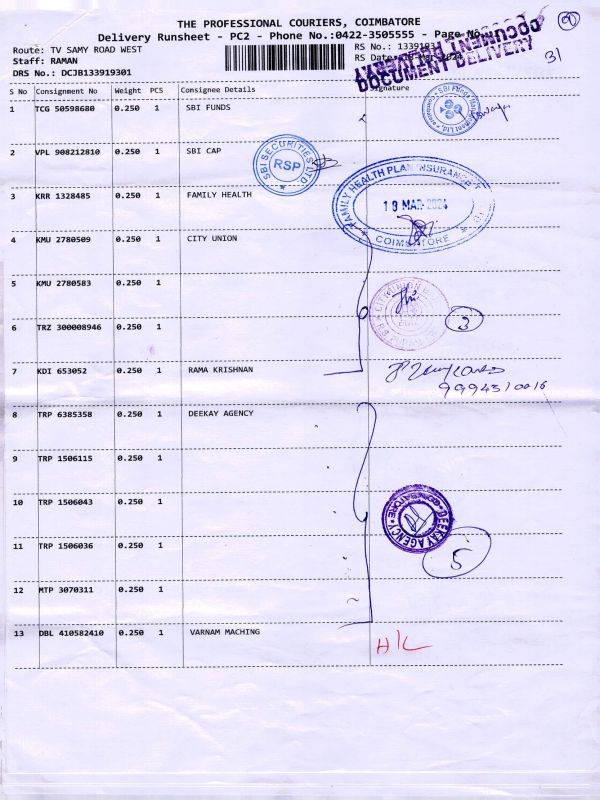 THE PROFESSIONAL COURIERS, COIMBATORE
Delivery Runsheet - PC2 - Phone No.:0422-3505555 - Page No.
Route: TV SAMY ROAD WEST
RS No.: 1339193
DOCUMENT DELIVERY
Staff: RAMAN
RS Date: 18-Mar-2024
DOCUMENT DELIVERY
31
DRS No.: DCJB133919301
S No Consignment No Weight PCS Consignee Details Signature
1 TCG 50598680 0.250 1 SBI FUNDS
2 VPL 908212810 0.250 1 SBI CAP
SBI SECURITIES LTD
RSP
3 KRR 1328485 0.250 1 FAMILY HEALTH
FAMILY HEALTH PLAN INSURANCE
18 MAR 2024
COIMBATORE
4 KMU 2780509 0.250 1 CITY UNION
5 KMU 2780583 0.250 1
3
6 TRZ 300008946 0.250 1
7 KDI 653052 0.250 1 RAMA KRISHNAN
8 TRP 6385358 0.250 1 DEEKAY AGENCY
9 TRP 1506115 0.250 1
10 TRP 1506043 0.250 1
DEEKAY AGENCY
COIMBATORE
11 TRP 1506036 0.250 1
5
12 MTP 3070311 0.250 1
13 DBL 410582410 0.250 1 VARNAM MACHING